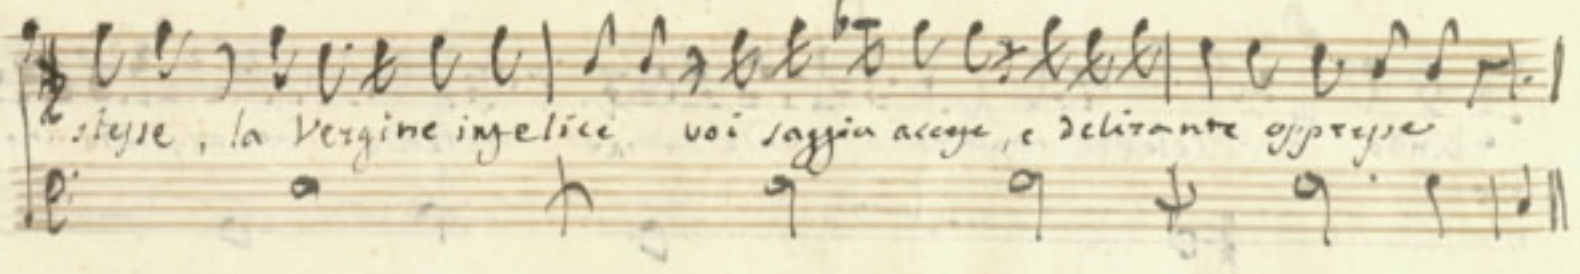 stesse, la Vergine infelice voi saggia accese, e delirante oppresse